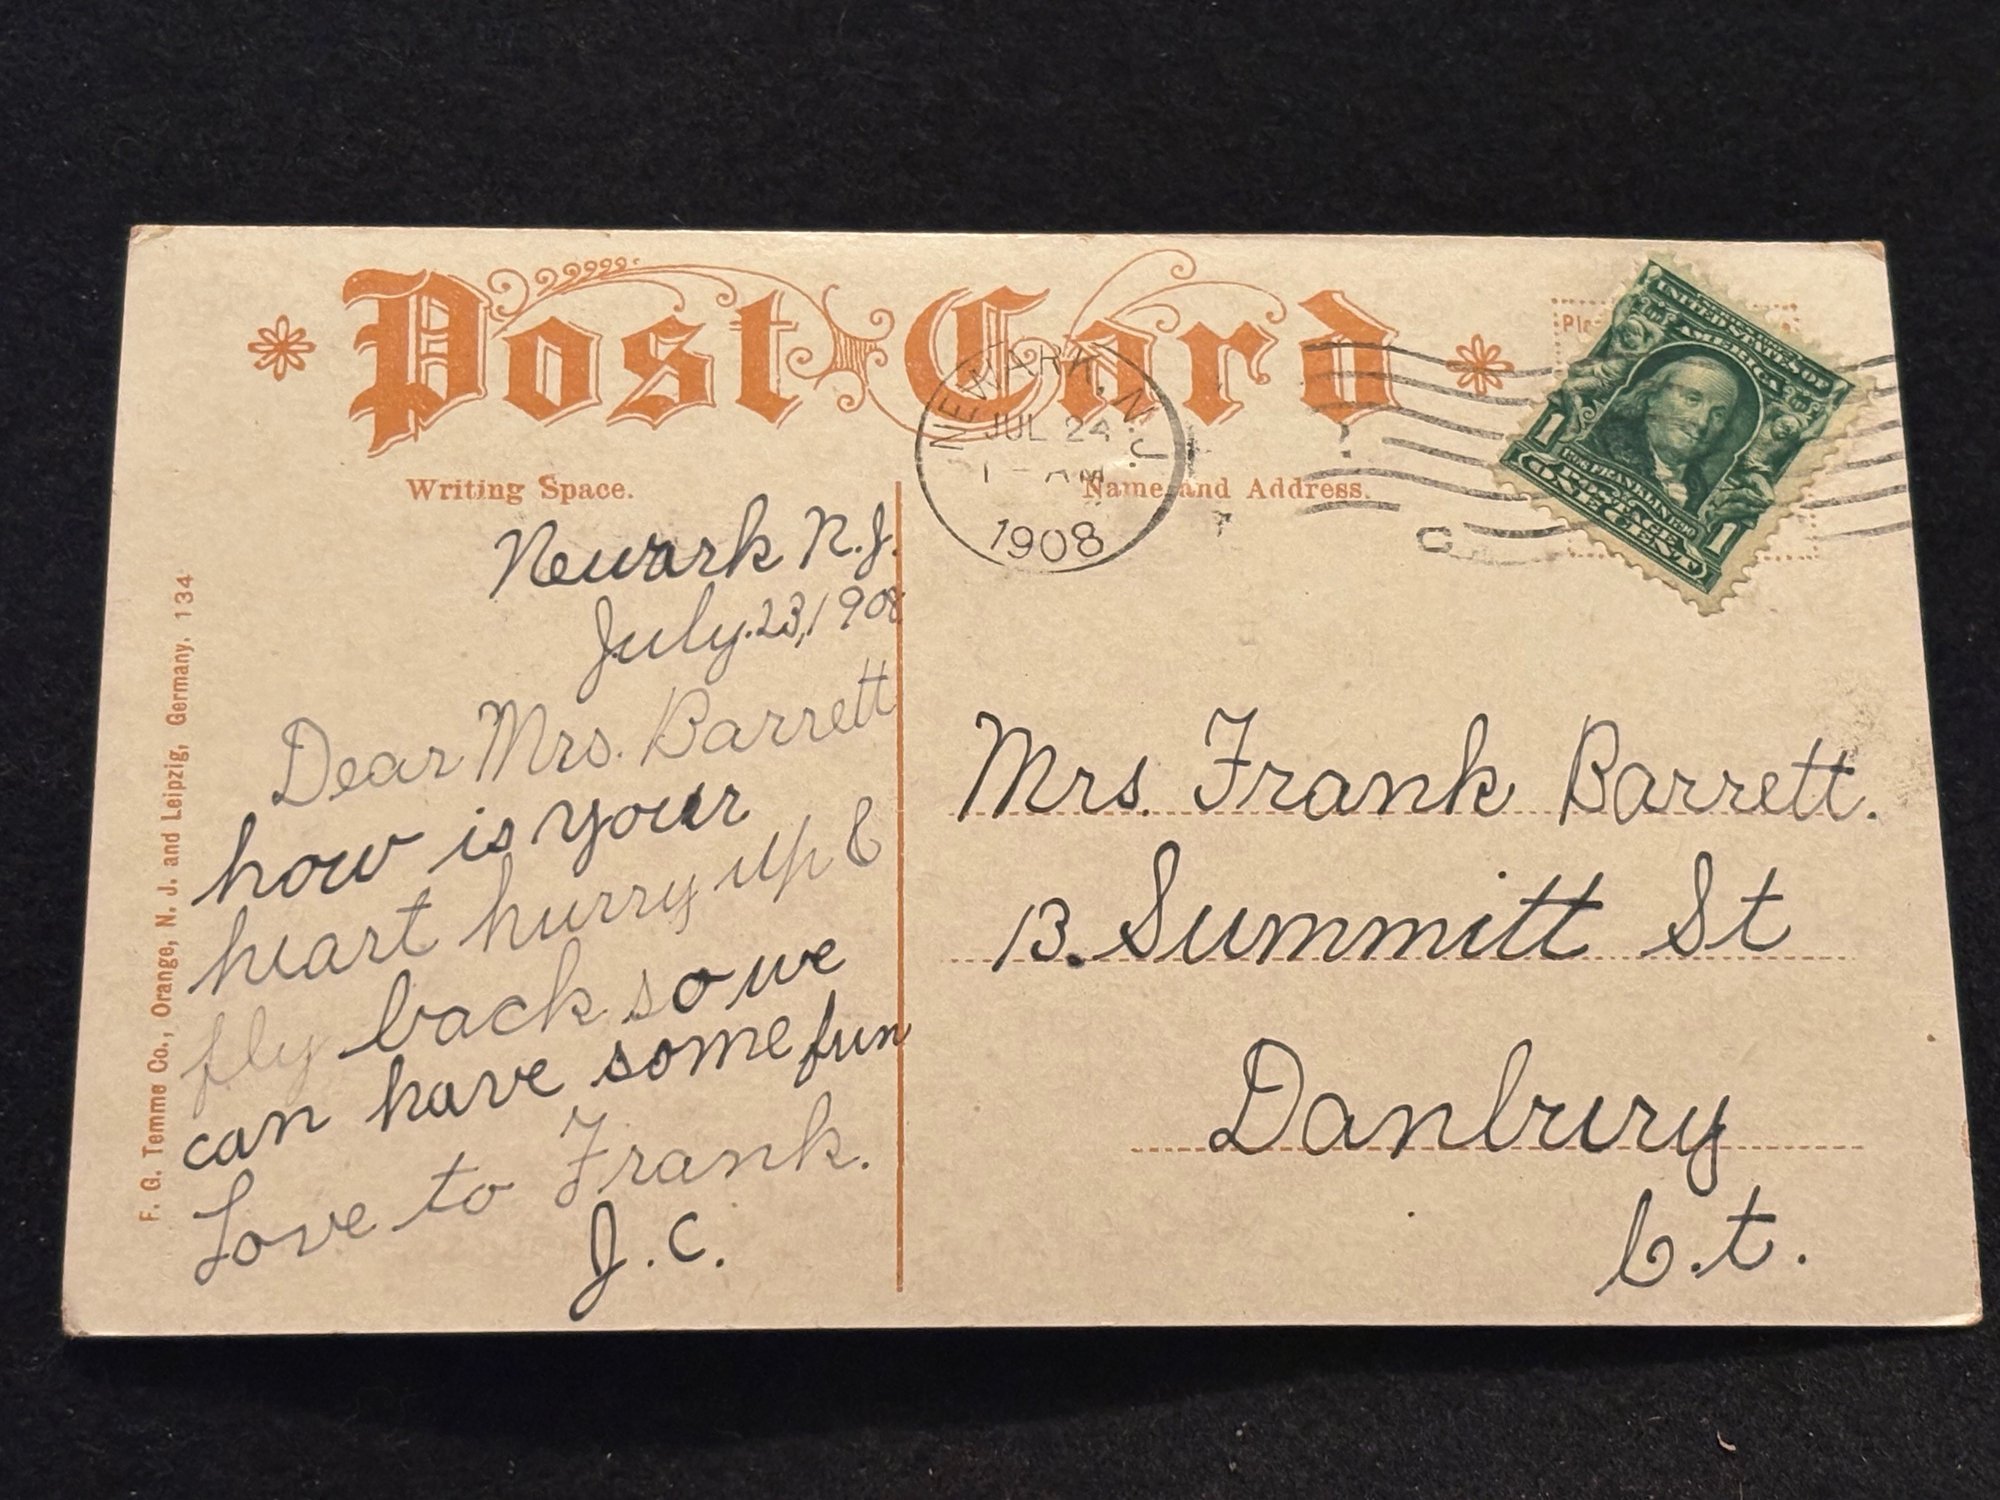 Post Card
Writing Space.
Name and Address.
NEWARK, N.J.
JUL 24
1 - AM
1908
C
UNITED STATES OF
AMERICA
1706 FRANKLIN 1790
POSTAGE
1 ONE CENT 1
Newark N.J.
July. 23, 1908
Dear Mrs. Barrett
how is your
heart hurry up &
fly back so we
can have some fun
Love to Frank.
J. C.
Mrs. Frank Barrett.
13. Summitt St
Danbury
C.t.
F. G. Temme Co., Orange, N. J. and Leipzig, Germany. 134